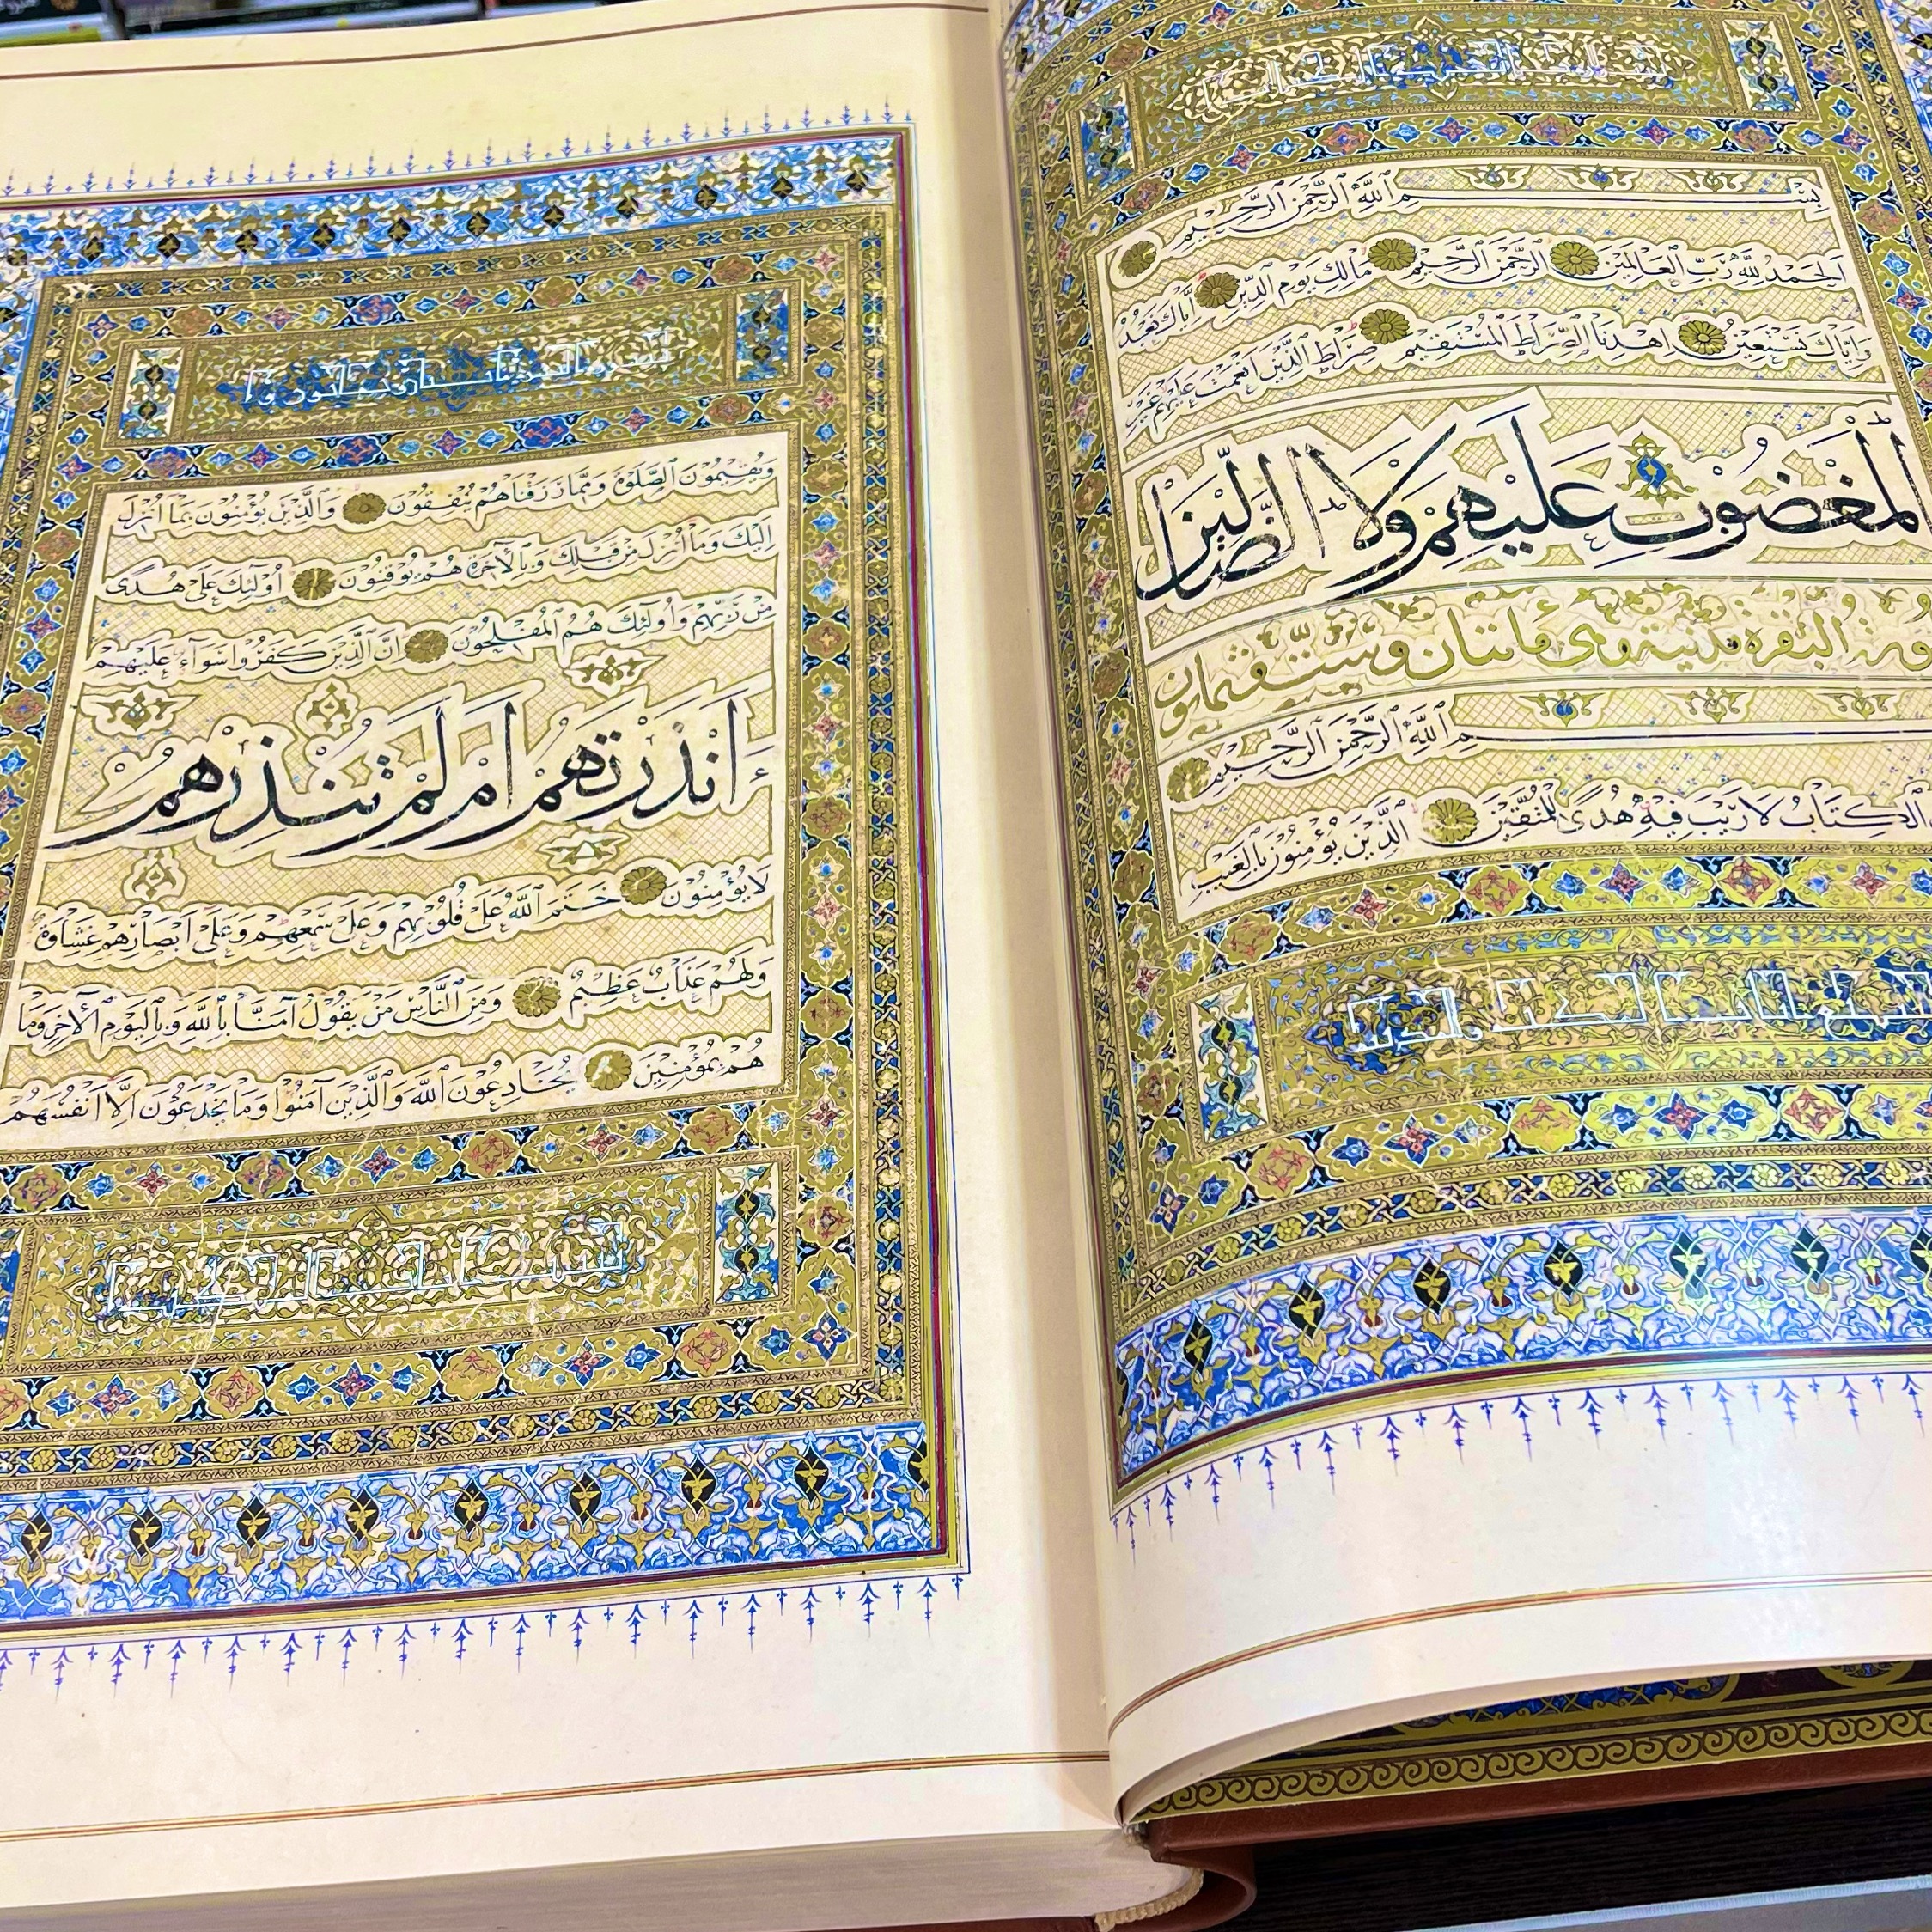 بِسْمِ اللَّهِ الرَّحْمَنِ الرَّحِيمِ
اَلْحَمْدُ لِلَّهِ رَبِّ الْعَالَمِينَ الرَّحْمَنِ الرَّحِيمِ مَالِكِ يَوْمِ الدِّينِ إِيَّاكَ نَعْبُدُ
وَإِيَّاكَ نَسْتَعِينُ اِهْدِنَا الصِّرَاطَ الْمُسْتَقِيمَ صِرَاطَ الَّذِينَ أَنْعَمْتَ عَلَيْهِمْ غَيْرِ
الْمَغْضُوبِ عَلَيْهِمْ وَلَا الضَّالِّينَ
البقرة مدنية وهى مائتان وست وثمانون
بِسْمِ اللَّهِ الرَّحْمَنِ الرَّحِيمِ
الْكِتَابُ لَا رَيْبَ فِيهِ هُدًى لِلْمُتَّقِينَ الَّذِينَ يُؤْمِنُونَ بِالْغَيْبِ
وَيُقِيمُونَ الصَّلَوةَ وَمِمَّا رَزَقْنَاهُمْ يُنْفِقُونَ وَالَّذِينَ يُؤْمِنُونَ بِمَا أُنْزِلَ
إِلَيْكَ وَمَا أُنْزِلَ مِنْ قَبْلِكَ وَبِالْآخِرَةِ هُمْ يُوقِنُونَ أُولَئِكَ عَلَى هُدًى
مِنْ رَبِّهِمْ وَأُولَئِكَ هُمُ الْمُفْلِحُونَ إِنَّ الَّذِينَ كَفَرُوا سَوَاءٌ عَلَيْهِمْ
ءَاَنْذَرْتَهُمْ اَمْ لَمْ تُنْذِرْهُمْ
لَا يُؤْمِنُونَ خَتَمَ اللَّهُ عَلَى قُلُوبِهِمْ وَعَلَى سَمْعِهِمْ وَعَلَى أَبْصَارِهِمْ غِشَاوَةٌ
وَلَهُمْ عَذَابٌ عَظِيمٌ وَمِنَ النَّاسِ مَنْ يَقُولُ آمَنَّا بِاللَّهِ وَبِالْيَوْمِ الْآخِرِ وَمَا
هُمْ بِمُؤْمِنِينَ يُخَادِعُونَ اللَّهَ وَالَّذِينَ آمَنُوا وَمَا يَخْدَعُونَ إِلَّا أَنْفُسَهُمْ